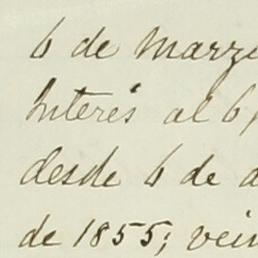 6 de Marzo
Interés al 6
desde 6 de
de 1855; vein